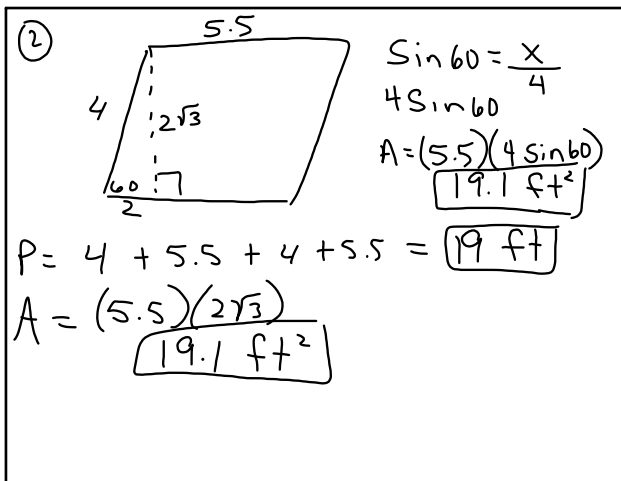 ②
5.5
4
2√3
60
2
Sin60 = x/4
4Sin60
A=(5.5)(4 sin60)
19.1 ft²
P= 4 + 5.5 + 4 + 5.5 = 19 ft
A = (5.5)(2√3)
19.1 ft²